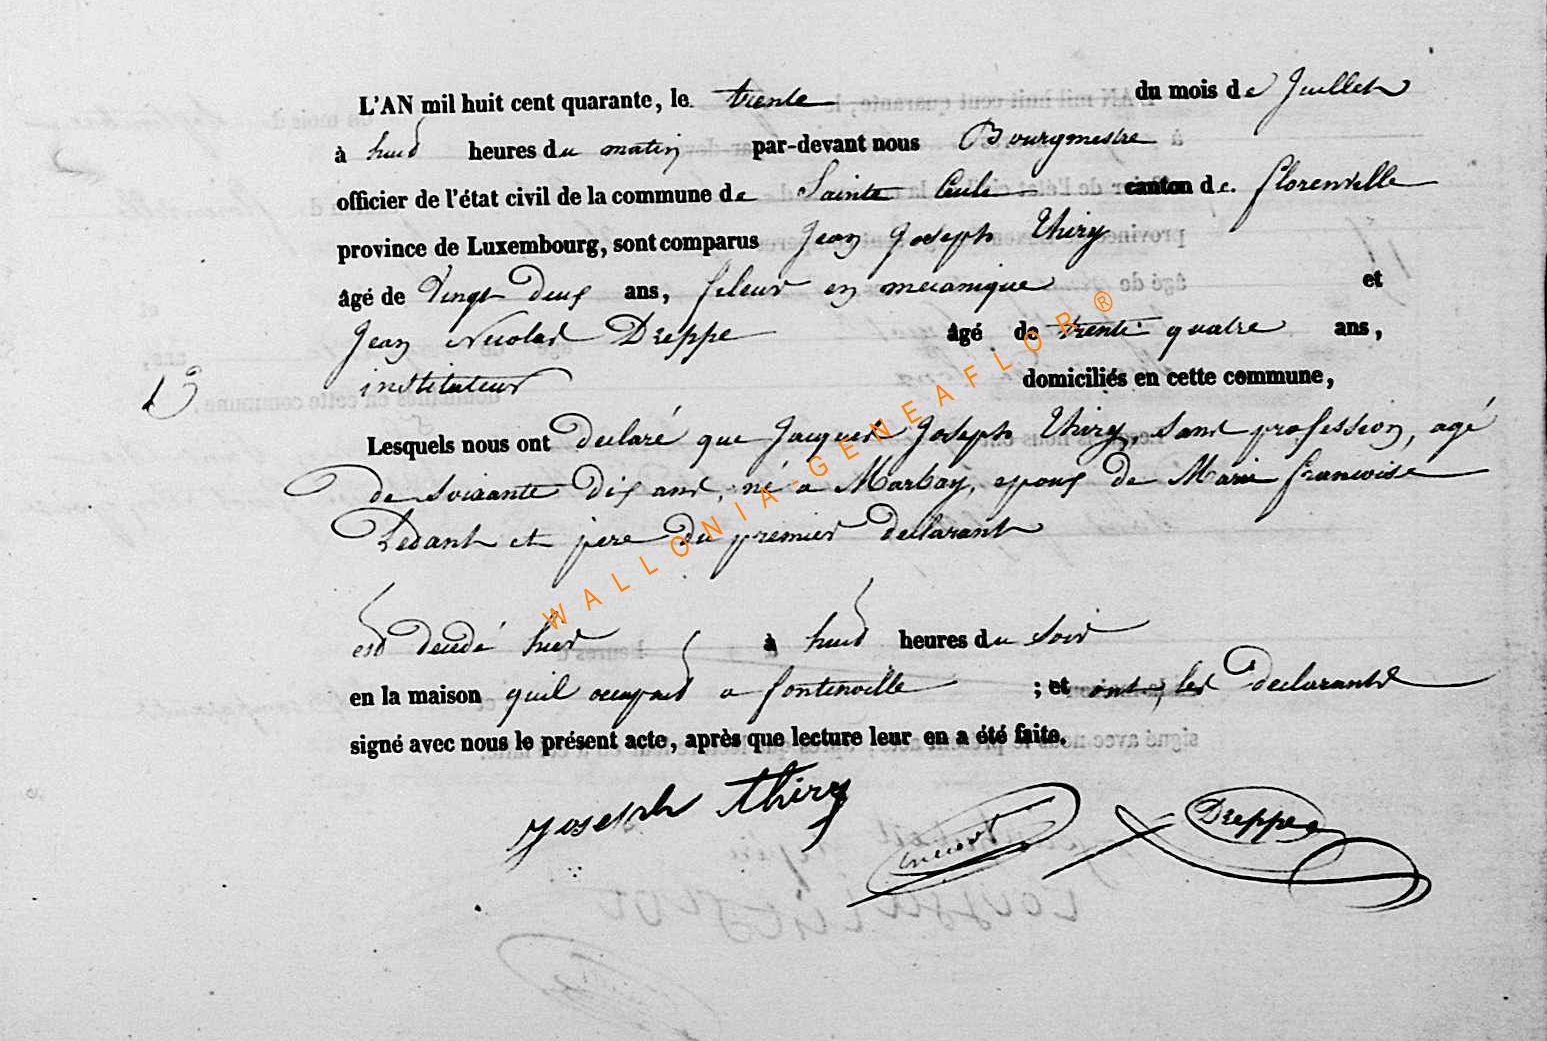 L'AN mil huit cent quarante, le trente du mois de Juillet
à huit heures du matin par-devant nous Bourgmestre
officier de l'état civil de la commune de Sainte Cécile canton de Florenville
province de Luxembourg, sont comparus Jean Joseph Thiry
âgé de Vingt deux ans, fileur en mecanique et
Jean Nicolas Dreppe âgé de trente quatre ans,
instituteur domiciliés en cette commune,
13
Lesquels nous ont declaré que Jacques Joseph Thiry, sans profession, agé
de soixante Dix ans, né a Marbay, epoux de Marie francoise
Ledant et pere du premier declarant
est decedé hier à huit heures du soir
en la maison quil occupait a fontenoille ; et ont, les declarants
signé avec nous le présent acte, après que lecture leur en a été faite.
Joseph thiry Dreppe
WALLONIA-GENEAFLOR®